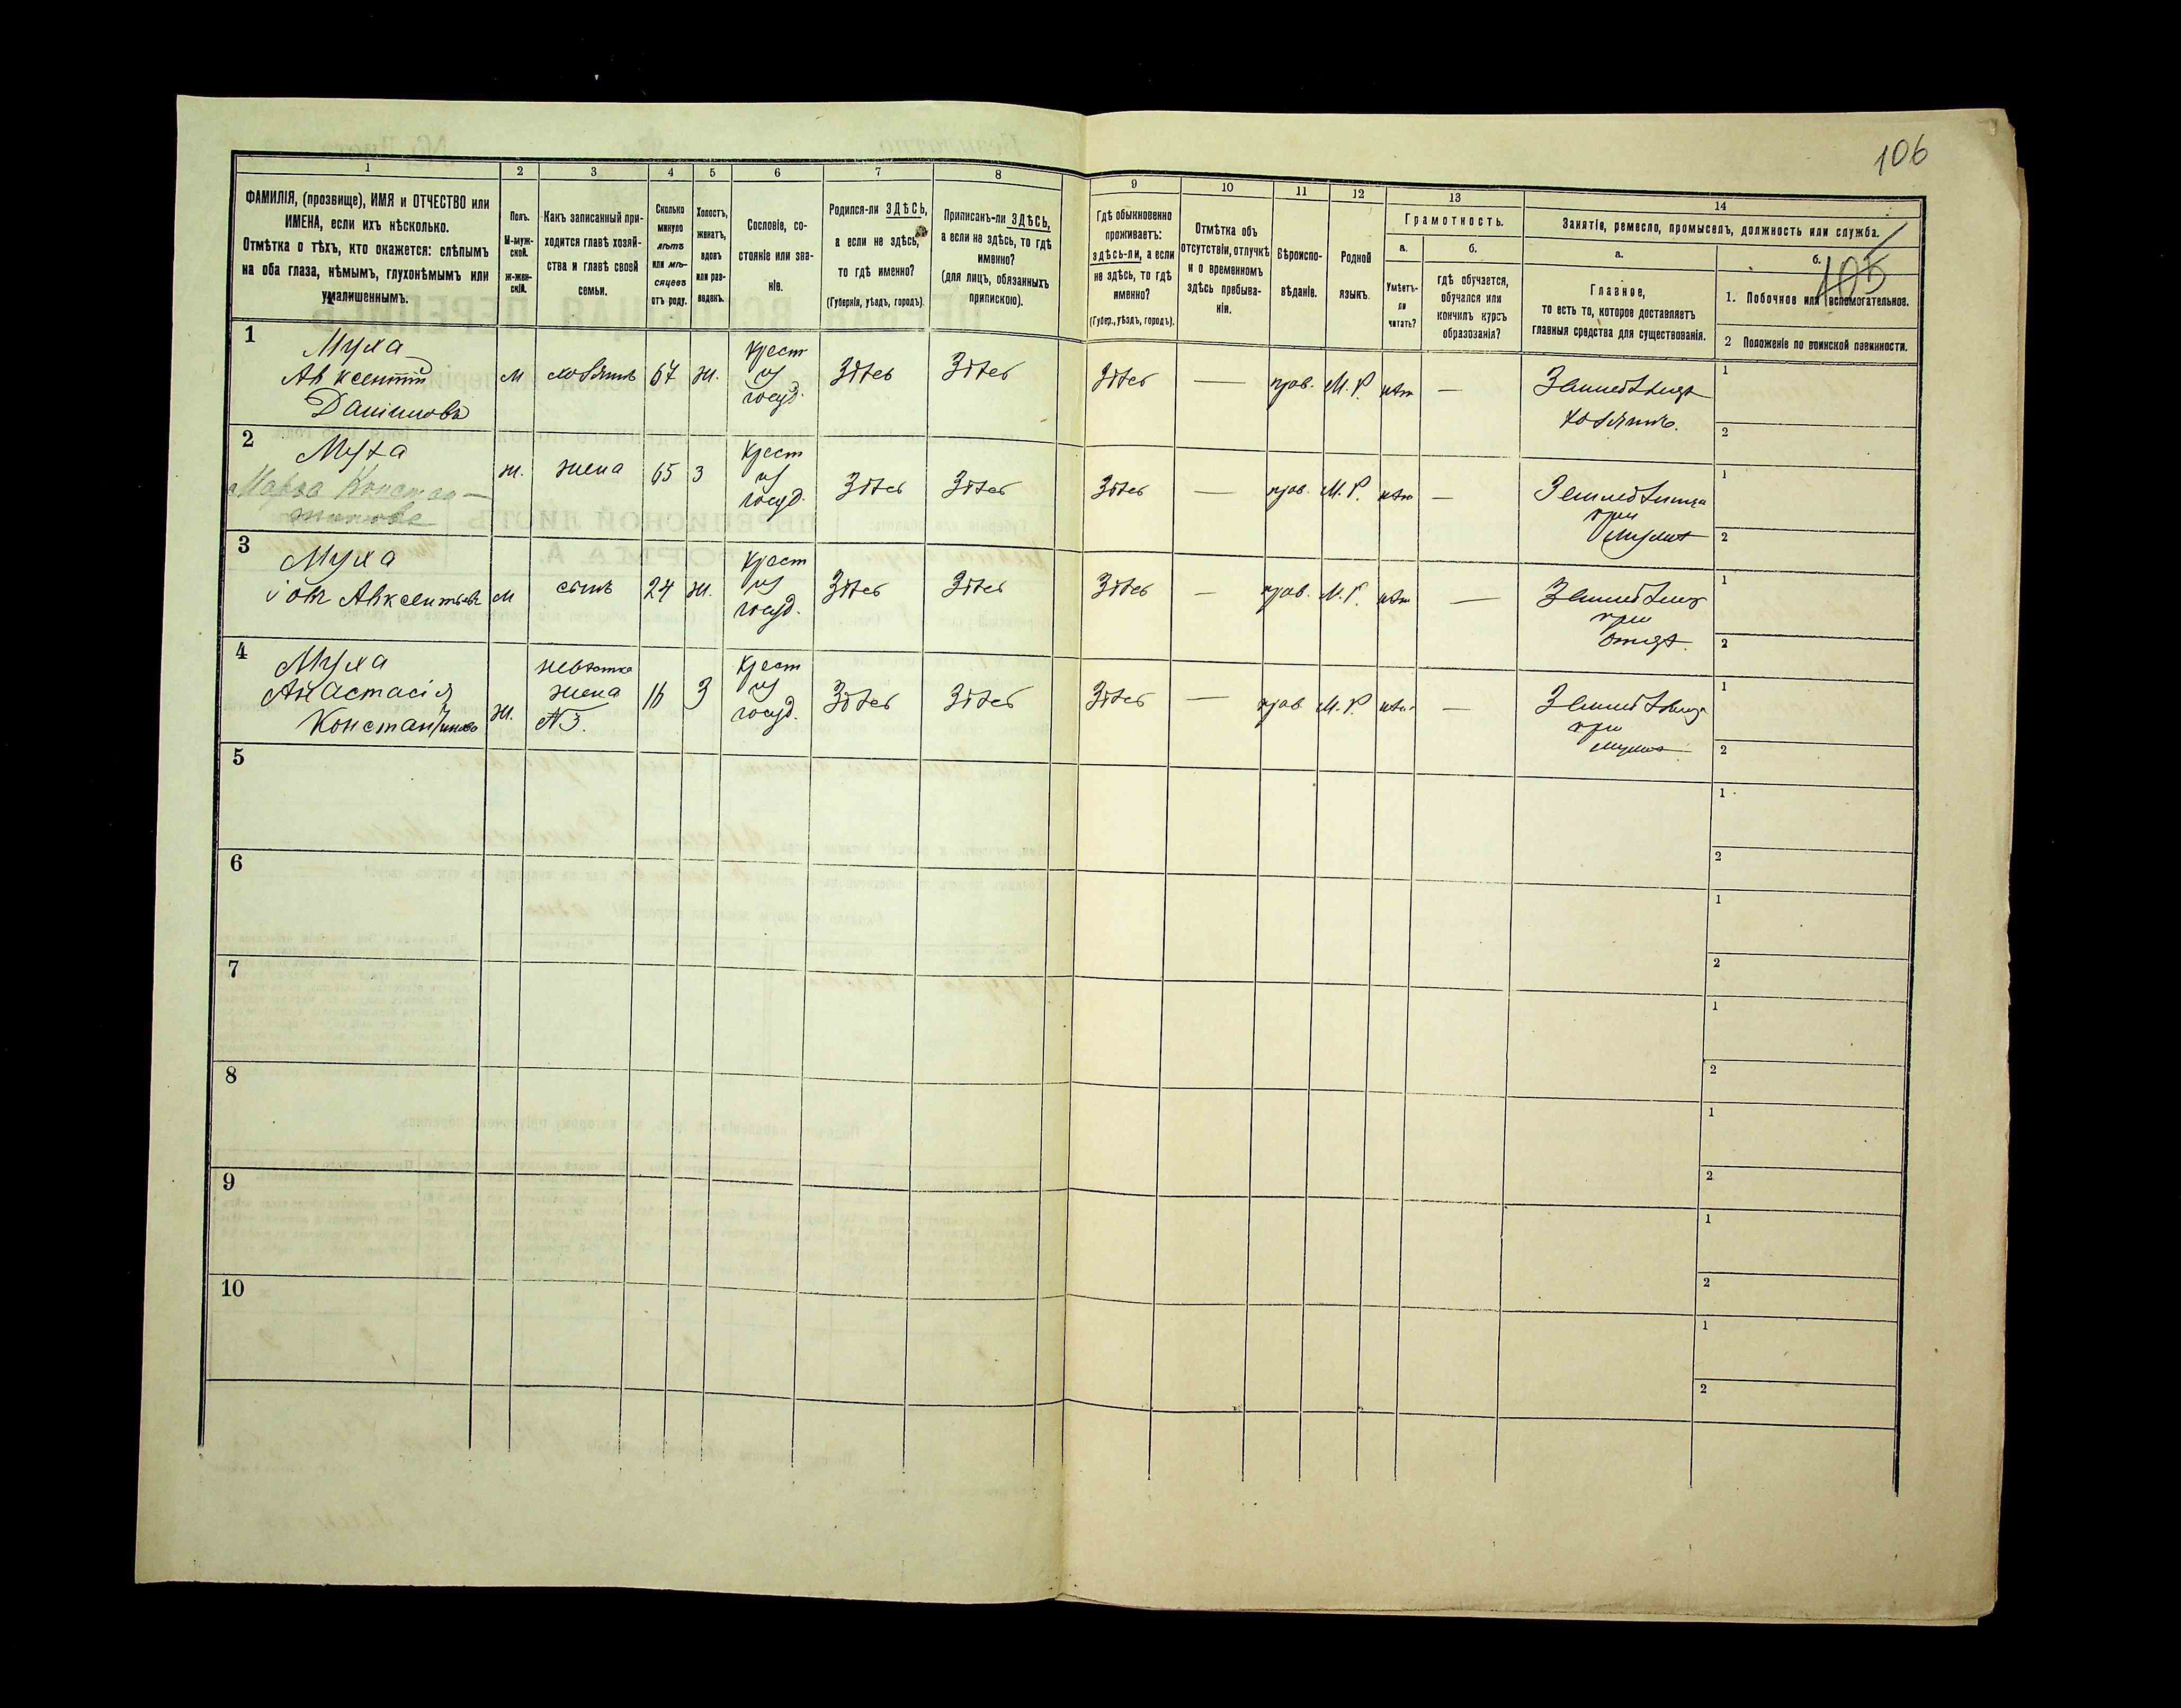 106
105
1
2
3
4
5
6
7
8
9
10
11
12
13
14
ФАМИЛІЯ, (прозвище), ИМЯ и ОТЧЕСТВО или
ИМЕНА, если ихъ нѣсколько.
Отмѣтка о тѣхъ, кто окажется: слѣпымъ
на оба глаза, нѣмымъ, глухонѣмымъ или
умалишеннымъ.
Полъ.
М-муж-
ской.
Ж-жен-
скій.
Какъ записанный при-
ходится главѣ хозяй-
ства и главѣ своей
семьи.
Сколько
минуло
лѣтъ
или мѣ-
сяцевъ
отъ роду.
Холостъ,
женатъ,
вдовъ
или раз-
веденъ.
Сословіе, со-
стояніе или зва-
ніе.
Родился-ли ЗДѢСЬ,
а если не здѣсь,
то гдѣ именно?
(Губернія, уѣздъ, городъ).
Приписанъ-ли ЗДѢСЬ,
а если не здѣсь, то гдѣ
именно?
(для лицъ, обязанныхъ
припискою).
Гдѣ обыкновенно
проживаетъ:
здѣсь-ли, а если
не здѣсь, то гдѣ
именно?
(Губер., уѣздъ, городъ).
Отмѣтка объ
отсутствіи, отлучкѣ
и о временномъ
здѣсь пребыва-
ніи.
Вѣроиспо-
вѣданіе.
Родной
языкъ.
Грамотность.
а.
б.
Умѣетъ-
ли
читать?
гдѣ обучается,
обучался или
кончилъ курсъ
образованія?
Занятіе, ремесло, промыселъ, должность или служба.
а.
б.
Главное,
то есть то, которое доставляетъ
главныя средства для существованія.
1. Побочное или вспомогательное.
2 Положеніе по воинской повинности.
1
Муха
Авксентій
Даниловъ
М
хозяинъ
67
ж.
крест
из
госуд.
Здѣсь
Здѣсь
Здѣсь
—
прав.
М. Р.
нѣт
—
Земледѣлецъ
хозяинъ.
1
2
2
Муха
Марѳа Констан-
тинова
ж.
жена
65
З
крест
из
госуд.
Здѣсь
Здѣсь
Здѣсь
—
прав.
М. Р.
нѣт
—
Земледѣлица
при
мужѣ
1
2
3
Муха
Іовъ Авксентьевъ
М
сынъ
24
ж.
крест
из
госуд.
Здѣсь
Здѣсь
Здѣсь
—
прав.
М. Р.
нѣт
—
Земледѣлец
при
отцѣ.
1
2
4
Муха
Анастасія
Константинова
ж.
невѣстка
жена
№3.
З
крест
из
госуд.
Здѣсь
Здѣсь
Здѣсь
—
прав.
М. Р.
нѣт
—
Земледѣлица
при
мужѣ
1
2
5
1
2
6
1
2
7
1
2
8
1
2
9
1
2
10
1
2